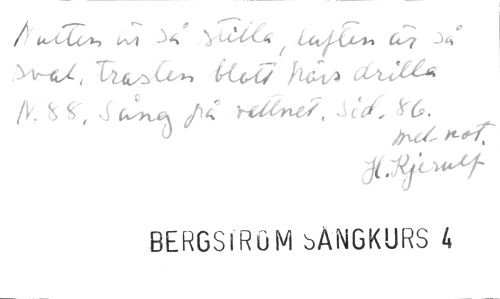 Natten är så stilla, luften är så
sval, trasten blott hörs drilla
N. 88, Sång på vattnet. Sid. 86.
mel. not.
H. Kjerulf
BERGSTRÖM SÅNGKURS 4